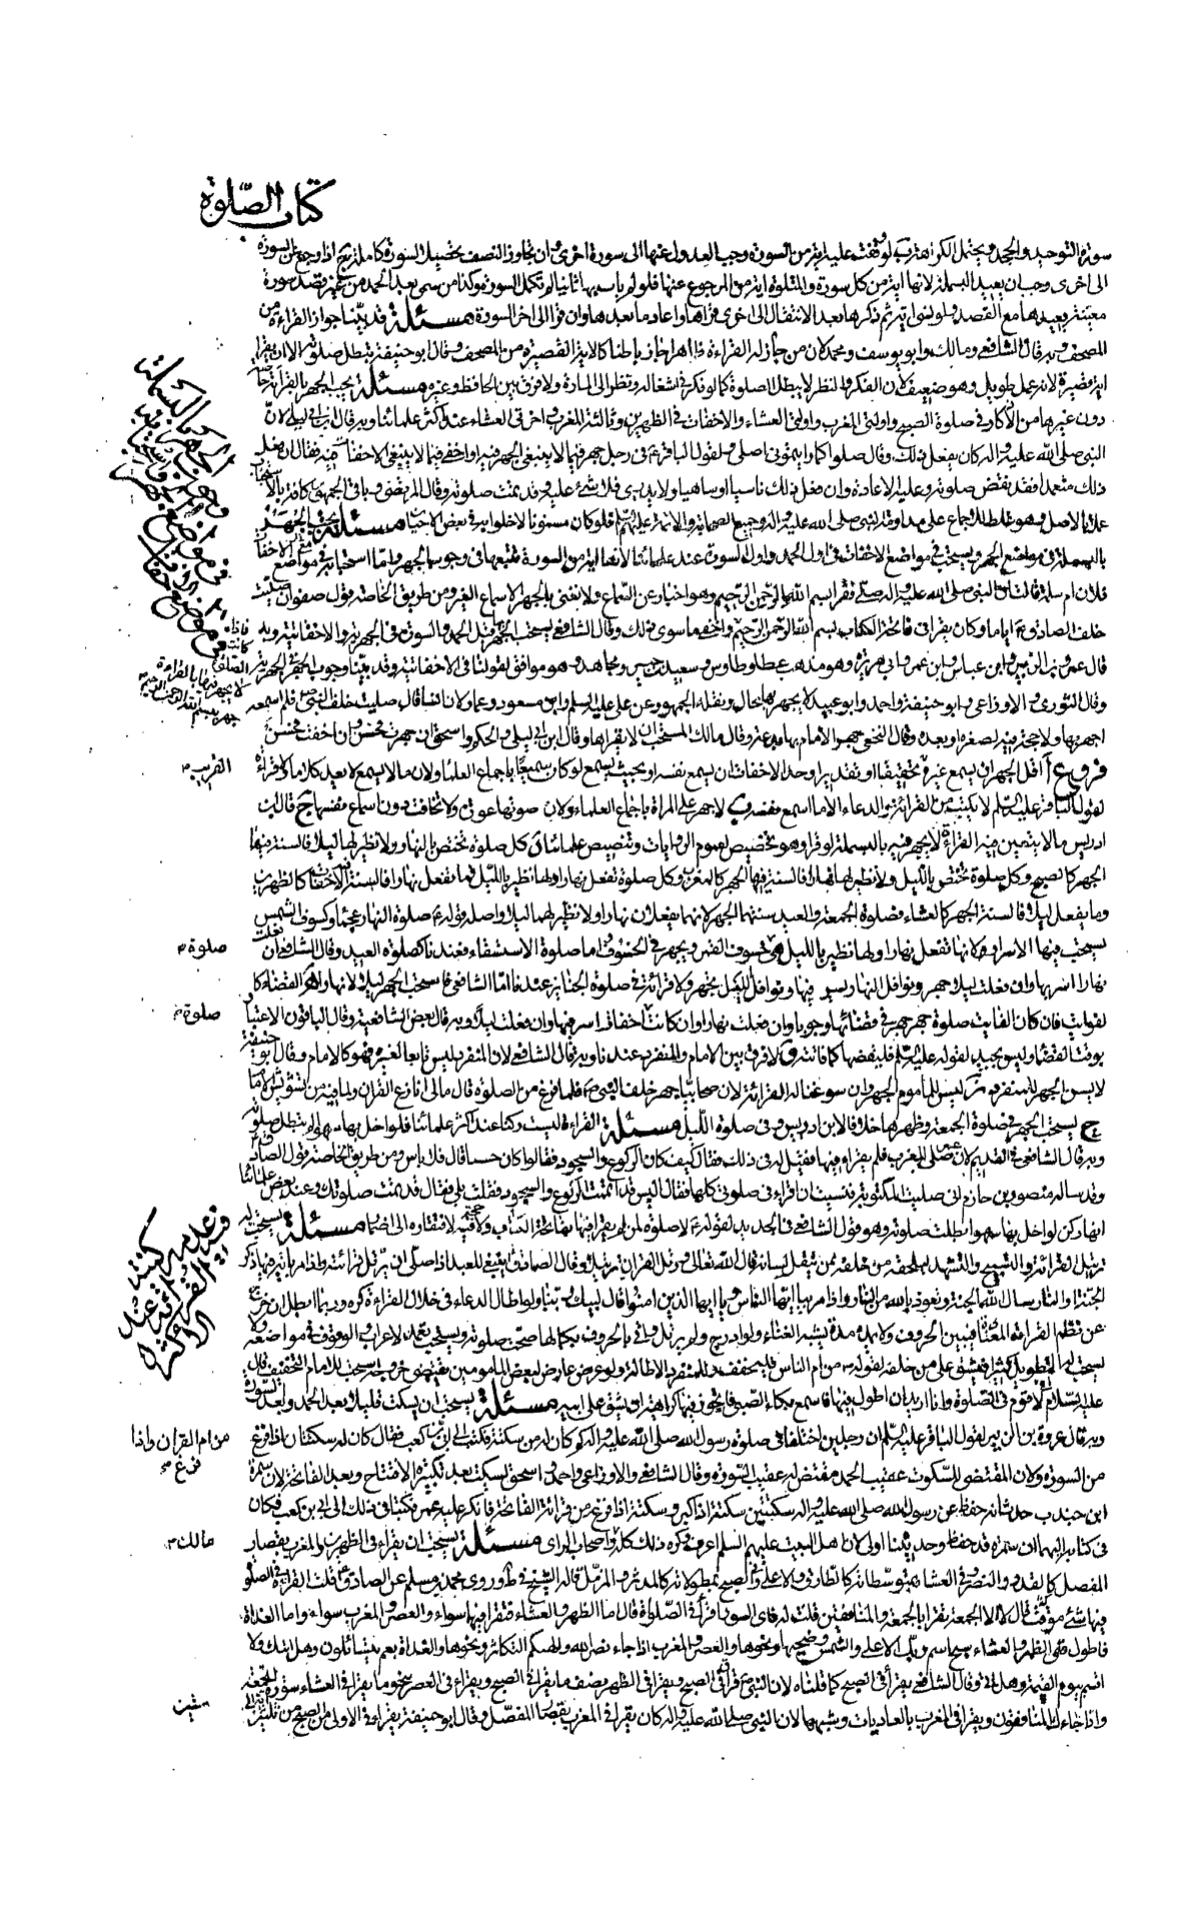 كتاب الصلوة
سورة التوحيد والجحد ويحتمل الكراهة ب لو وقفت عليه اية من السورة وجب العدول عنها الى سورة اخرى وان تجاوز النصف تحصيلا لسورة كاملة ج اذا رجع من السورة
الى اخرى وجب ان يعيد البسملة لانها اية من كل سورة والمتلوة اية من المرجوع عنها فلو لم يأت بها ثانيا لم تكمل السورة وكذا من سمى بعد الحمد من غير قصد سورة
معينة يعيدها مع القصد ولو نسى اية ثم ذكرها بعد الانتقال الى اخرى قراها واعاد ما بعدها وان قرا الى اخر السورة مسئلة قد بينا جواز القراءة من
المصحف وبه قال الشافعى ومالك وابو يوسف ومحمد لان من جاز له القراءة ظاهرا جاز باطنا كالاية القصيرة من المصحف وقال ابو حنيفة تبطل صلوته الا ان يقرا
اية قصيرة لانه عمل طويل وهو ضعيف لان الفكر والنظر لا يبطل الصلوة كما لو تفكر فى اشغاله ونظر الى المارة ولا فرق بين الحافظ وغيره مسئلة يجب الجهر بالقراءة خاصة
دون غيرها من الاذكار فى صلوة الصبح واولتى المغرب واولتى العشاء والاخفات فى الظهرين وثالثة المغرب واخرتى العشاء عند اكثر علمائنا وبه قال ابن ابى ليلى لان
النبى صلى الله عليه واله كان يفعل ذلك وقال صلوا كما رايتمونى اصلى ولقول الباقر ع فى رجل جهر فيما لا ينبغى الجهر فيه واخفى فيما لا ينبغى الاخفات فيه فقال ان فعل
ذلك متعمدا فقد نقض صلوته وعليه الاعادة وان فعل ذلك ناسيا او ساهيا ولا يدرى فلا شئ عليه وقد تمت صلوته وقال المرتضى وباقى الجمهور كافة بالاستحباب
عملا بالاصل وهو غلط للاجماع على مداومة النبى صلى الله عليه واله وجميع الصحابة والائمة عليهم السلم فلو كان مسنونا لاخلوا به فى بعض الاحيان مسئلة يجب الجهر
بالبسملة فى مواضع الجهر ويستحب فى مواضع الاخفات فى اول الحمد واول السورة عند علمائنا لانها اية من السورة تتبعها فى وجوب الجهر واما استحبابه فى مواضع الاخفات
فلان ام سلمة قالت ان النبى صلى الله عليه واله صلى فقرا بسم الله الرحمن الرحيم وهو اخبار عن السماع ولا نعنى بالجهر الا اسماع الغير ومن طريق الخاصة قول صفوان صليت
خلف الصادق ع اياما وكان يقرا فى فاتحة الكتاب بسم الله الرحمن الرحيم واخفى ما سوى ذلك وقال الشافعى يستحب الجهر بها قبل الحمد والسورة فى الجهرية والاخفاتية وبه
قال عمر وابن الزبير وابن عباس وابن عمر وابى هريرة وهو مذهب عطا وطاوس وسعيد بن جبير ومجاهد وهو موافق لقولنا فى الاخفاتية وقد بينا وجوب الجهر فى الجهرية
وقال الثورى والاوزاعى وابو حنيفة واحمد وابو عبيد لا يجهر بها بحال ونقله الجمهور عن على عليه السلم وابن مسعود وعمار لان انسا قال صليت خلف النبى ص فلم اسمعه
يجهر بها ولا حجة فيه لصغره او بعده وقال النخعى جهر الامام بها بدعة وقال مالك المستحب ان لا يقراها وقال ابن ابى ليلى والحكم واسحق ان جهرت فحسن وان اخفت فحسن
فروع ا اقل الجهر ان يسمع غيره القريب تحقيقا او تقديرا وحد الاخفات ان يسمع نفسه او بحيث يسمع لو كان سميعا باجماع العلماء ولان ما لا يسمع لا يعد كلاما ولا قراءة
لقول الباقر عليه السلم لا يكتب من القرائة والدعاء الا ما اسمع نفسه ب لا جهر على المراة باجماع العلماء ولان صوتها عورة ولا تخافت دون اسماع نفسها ج قال ابن
ادريس ما لا يتعين فيه القراءة لا يجهر فيه بالبسملة لو قرا وهو تخصيص لعموم الروايات وتنصيص علمائنا د كل صلوة تختص بالنهار ولا نظير لها ليلا فالسنة فيها
الجهر كالصبح وكل صلوة تختص بالليل ولا نظير لها نهارا فالسنة فيها الجهر كالمغرب وكل صلوة تفعل نهارا ولها نظير بالليل فما تفعل نهارا فالسنة فيه الاخفات كالظهرين
وما يفعل ليلا فالسنة الجهر كالعشاء فصلوة الجمعة والعيد سنتهما الجهر لانهما يفعلان نهارا ولا نظير لهما ليلا واصله قوله ع صلوة النهار عجما وكسوف الشمس
يستحب فيها الاسرار لانها تفعل نهارا ولها نظير بالليل هى خسوف القمر ويجهر فى الخسوف واما صلوة الاستسقاء فعندنا كصلوة العيد وقال الشافعى ان فعلت
نهارا اسر بها وان فعلت ليلا جهر ونوافل النهار يسر فيها ونوافل الليل يجهر ولا قرائة فى صلوة الجنازة عندنا اما الشافعى فاستحب الجهر ليلا لا نهارا ه القضاء كا
لفوايت فان كان الفايت صلوة جهر جهر فى قضائها وجوبا وان فعلت نهارا وان كانت صلوة اخفات اسر فيها وان فعلت ليلا وبه قال بعض الشافعية وقال الباقون الاعتبار
بوقت القضاء وليس بجيد لقوله عليه السلم فليقضها كما فاتته و لا فرق بين الامام والمنفرد عندنا وبه قال الشافعى لان المنفرد ليس تابعا لغيره فهو كالامام وقال ابو حنيفة
لا يسن الجهر للمنفرد ز ليس للماموم الجهر وان سوغنا له القرائة لان صحابيا جهر خلف النبى ص فلما فرغ من الصلوة قال مالى انازع القران ولما فيه من تشويش الامام
ح يستحب الجهر فى صلوة الجمعة وظهرها خلافا لابن ادريس وفى صلوة الليل مسئلة القراءة ليست ركنا عند اكثر علمائنا فلو اخل بها سهوا لم تبطل صلوته
وبه قال الشافعى فى القديم لان عمر صلى المغرب فلم يقراء فيها فقيل له فى ذلك فقال كيف كان الركوع والسجود فقالوا كان حسنا قال فلا باس ومن طريق الخاصة قول الصادق ع
وقد ساله منصور بن حازم انى صليت المكتوبة فنسيت ان اقراء فى صلوتى كلها فقال اليس قد اتممت الركوع والسجود فقلت بلى فقال قد تمت صلوتك وعند بعض علمائنا
انها ركن لو اخل بها سهوا بطلت صلوته وهو قول الشافعى فى الجديد لقوله ع لا صلوة لمن لم يقرا فيها بفاتحة الكتاب ولا حجة فيه لافتقاره الى اضمار مسئلة يستحب له
ترتيل القرائة والتسبيح والتشهد ليلحقه من خلفه ممن يثقل لسانه قال الله تعالى ورتل القران ترتيلا وقال الصادق ع ينبغى للعبد اذا صلى ان يرتل قرائته واذا مر باية فيها ذكر
الجنة او النار سال الله الجنة وتعوذ بالله من النار واذا مر بيا ايها الناس ويا ايها الذين امنوا قال لبيك ربنا ولو اطال الدعاء فى خلال القراءة كره وربما ابطل ان خرج
عن نظم القراءة المعتاد فيبين الحروف ولا يمده مدة يشبه الغناء ولو ادرج ولم يرتل واتى بالحروف بكمالها صحت صلوته ويستحب تعمد الاعراب والوقوف فى مواضعه ولا
يستحب له التطويل كثيرا فيشق على من خلفه لقوله ع من ام الناس فليخفف وللمنفرد الاطالة ولو عرض عارض لبعض المامومين يقتضى خروجه استحب للامام التخفيف قال
عليه السلام انى لاقوم فى الصلوة وانا اريد ان اطول فيها فاسمع بكاء الصبى فاتجوز فيها كراهية ان يشق على ابيه مسئلة يستحب ان يسكت قليلا بعد الحمد وبعد السورة
وبه قال عروة بن الزبير لقول الباقر عليه السلم ان رجلين اختلفا فى صلوة رسول الله صلى الله عليه واله كم كان له من سكتة فكتبا الى ابى بن كعب فقال كان له سكتتان اذا فرغ
من السورة ولان المقتضى للسكوت عقيب الحمد مقتض له عقيب السورة وقال الشافعى والاوزاعى واحمد واسحق يسكت بعد تكبيرة الافتتاح وبعد الفاتحة لان سمرة
ابن جندب حدث انه حفظ عن رسول الله صلى الله عليه واله سكتتين سكتة اذا كبر وسكتة اذا فرغ من قرائة الفاتحة فانكر عليه عمر فكتبا فى ذلك الى ابى بن كعب فكان
فى كتابه اليهما ان سمرة قد حفظ وحديثنا اولى لان اهل البيت عليهم السلم اعرف وكره ذلك كله اصحاب الراى مسئلة يستحب ان يقراء فى الظهرين والمغرب بقصار
المفصل كالقدر والنصر وفى العشاء بمتوسطاته كالطارق والاعلى وفى الصبح بمطولاته كالمدثر والمزمل قاله الشيخ فى ط وروى محمد بن مسلم عن الصادق ع قلت القراءة فى الصلوة
فيها شئ موقت قال لا الا الجمعة تقرا بالجمعة والمنافقين قلت له فاى السور اقرأ فى الصلوة قال اما الظهر والعشاء تقرا فيها سواء والعصر والمغرب سواء واما الغداة
فاطول ففى الظهر والعشاء سبح اسم ربك الاعلى والشمس وضحيها ونحوها والعصر والمغرب اذا جاء نصر الله والهيكم التكاثر ونحوها والغداة بعم يتسائلون وهل اتيك ولا
اقسم بيوم القيمة وهل اتى وقال الشافعى يقرأ فى الصبح كما قلناه لان النبى ص قرا فى الصبح ق ويقرا فى الظهر بنصف ما يقرا فى الصبح ويقراء فى العصر بنحو ما يقرا فى العشاء سورة الجمعة
واذا جاءك المنافقون ويقرا فى المغرب بالعاديات وشبهها لان النبى صلى الله عليه واله كان يقرا فى المغرب بقصار المفصل وقال ابو حنيفة يقراء فى الاولى من الصبح من ثلثين
القريب
صلوة
صلوة
من ام القران واذا
فرغ
مالك